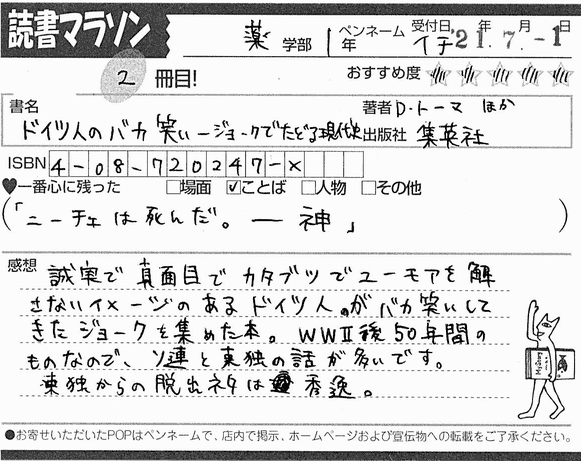 読書マラソン
薬 学部 年 ペンネーム イチ 受付日 '21年 7月 -1日
2 冊目!
おすすめ度
書名 著者 D・トーマ ほか
ドイツ人のバカ笑い―ジョークでたどる現代史 出版社 集英社
ISBN 4-08-720247-X
♥一番心に残った □場面 ☑ことば □人物 □その他
(「ニーチェは死んだ。― 神」)
感想 誠実で真面目でカタブツでユーモアを解
さないイメージのあるドイツ人。がバカ笑いして
きたジョークを集めた本。WWⅡ後50年間の
ものなので、ソ連と東独の話が多いです。
東独からの脱出ネタは秀逸。
●お寄せいただいたPOPはペンネームで、店内で掲示、ホームページおよび宣伝物への転載をご了承ください。